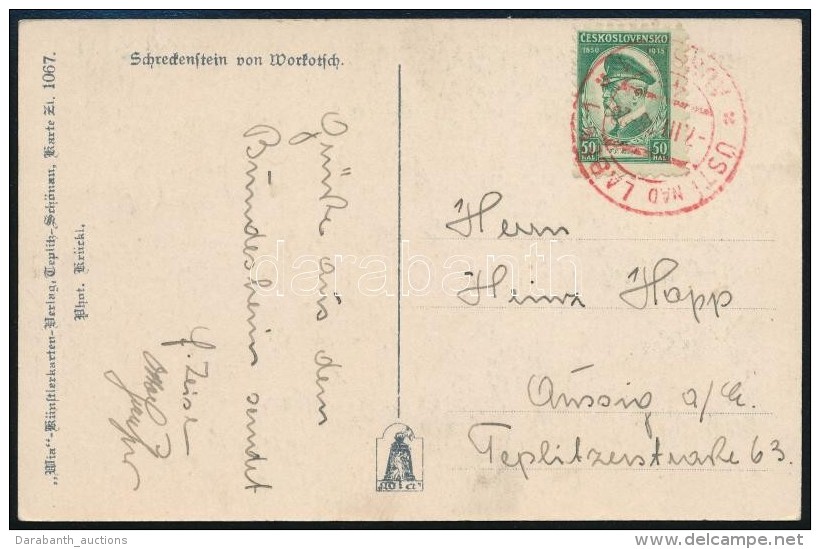 Schreckenstein von Workotsch.
„Wia“-Künstlerkarten-Verlag, Teplitz-Schönau, Karte Zl. 1067.
Phot. Krückl.
Grüße aus dem
Bundesheim sendet
ČESKOSLOVENSKO
1850 1935
50 50
HAL HAL
ÚSTÍ NAD LABEM 1
Herrn
Heinz Happ
Aussig a/E.
Teplitzerstraße 63.
Wia
darabanth
Darabanth_auctions
www.delcampe.net